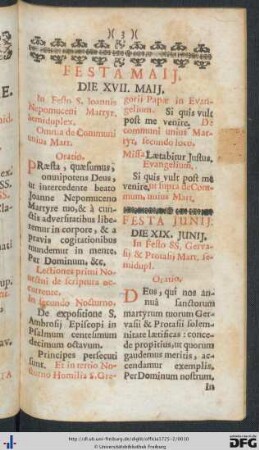 )( 3 )(
FESTA MAIJ.
DIE XVII. MAIJ.
In Festo S. Ioannis
Nepomuceni Martyr.
semiduplex.
Omnia de Communi
unius Mart.
Oratio.
PRæsta, quæsumus,
omnipotens Deus,
ut intercedente beato
Joanne Nepomuceno
Martyre tuo, & à cun-
ctis adversitatibus libe-
remur in corpore, & a
pravis cogitationibus
mundemur in mente.
Per Dominum, &c.
Lectiones primi No-
cturni de scriptura oc-
currente.
In secundo Nocturno,
De expositione S.
Ambrosij Episcopi in
Psalmum centesimum
decimum octavum.
Principes persecuti
sunt. Et in tertio No-
cturno Homilia S. Gre-
gorii Papæ in Evan-
gelium. Si quis vult
post me venire. De
communi unius Mar-
tyr, secundo loco.
Missa Lætabitur Justus.
Evangelium.
Si quis vult post me
venire, ut supra de Com-
muni, unius Mart.
FESTA JUNIJ
DIE XIX. JUNIJ.
In Festo SS. Gerva-
sij & Protasij Mart. se-
midupl.
Oratio.
DEus, qui nos an-
nuâ sanctorum
martyrum tuorum Ger-
vasii & Protasii solem-
nitate lætificas: conce-
de propitius, ut quorum
gaudemus meritis, ac-
cendamur exemplis.
Per Dominum nostrum.
In
© Universitätsbibliothek Freiburg
DFG